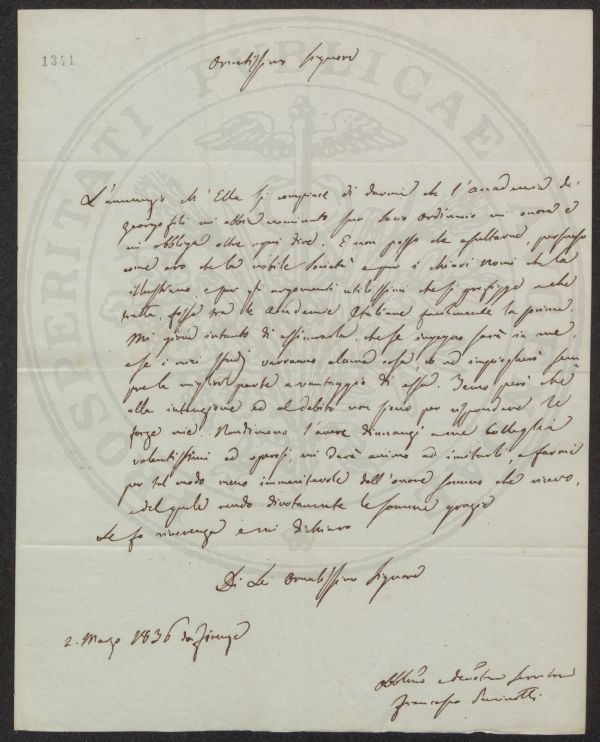 1341
Ornatissimo Signore
L'annunzio ch'Ella si compiace di darmi che l'accademia de'
georgofili mi abbia nominato suo socio ordinario mi onora e
mi obbliga oltre ogni dire. E non posso che esultarne, persuaso
come ero che la nobile Società e per i chiari nomi che la
illustrano, e per gli argomenti utilissimi che si prefigge
tratta, fosse tra le accademie Italiane facilmente la prima.
Mi giova intanto di assicurarla, che se ingegno sarà in me
e se i miei studj varranno alcuna cosa, io ad impiegherò sem
pre la miglior parte a vantaggio di essa. Temo però che
alla intenzione ed al debito non siano per rispondere le
forze mie. Nondimeno l'avere dinnanzi a me Colleghi
valentissimi ed operosi, mi darà animo ad imitarli, e farmi
per tal modo meno immeritevole dell'onore sommo che ricevo,
e del quale rendo divotamente le somme grazie
Le fo riverenza e mi dichiaro
Di Lei Ornatissimo Signore
2. Marzo 1836 da Firenze
Obblmo e devotmo servitore
Francesco Puccinotti
PROSPERITATI PUBLICAE